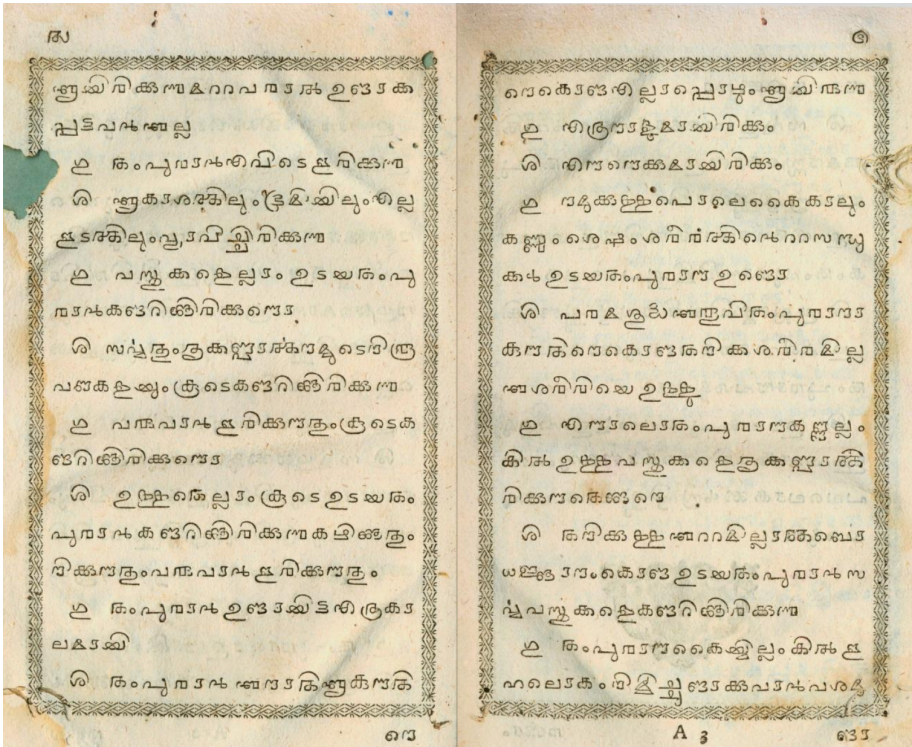 ൪
ആയിരിക്കുന്നമററപരാരൽ ഉണ്ടാക്ക
പ്പട്ടവൻഅല്ല
ഗു തംപുരാൻഎവിടെഇരിക്കുന്ന
ശി ആകാശത്തിലുംഭൂമിയിലുംഎല്ല
ഇടത്തിലുംവ്യാപിച്ചിരിക്കുന്ന
ഗു വസ്തുക്കളെല്ലാം ഉടയതംപു
രാൻകണ്ടറിഞ്ഞിരിക്കുന്നൊ
ശി സർവ്വതുംതൃക്കണ്ണാൽ
പണകളയുംകൂടെകണ്ടറിഞ്ഞിരിക്കുന്ന
ഗു വരുവാൻഇരിക്കുന്നതുംകൂടെക
ണ്ടറിഞ്ഞിരിക്കുന്നൊ
ശി ഉള്ളതെല്ലാംകൂടെ ഉടയതം
പുരാൻകണ്ടറിഞ്ഞിരിക്കുന്നകഴിഞ്ഞതും
നിക്കുന്നതുംവരുവാൻഇരിക്കുന്നതും
ഗു തംപുരാൻ ഉണ്ടായിട്ടഎത്രകാ
ലമായി
ശി തംപുരാൻഅനാദിആകുന്നതി
നെ
൫
നെകൊണ്ടഎല്ലാപ്പൊഴുംആയിരുന്ന
ഗു എത്രനാളമായിരിക്കും
ശി എന്നെക്കുമായിരിക്കും
ഗു നമുക്കുള്ളപൊലെകൈകാലും
കണ്ണും ശെഷംശരീരത്തിൻറെറസന്ധു
ക്കൾ ഉടയതംപുരാന ഉണ്ടൊ
ശി പരമശുദ്ധഅരൂപിതംപുരാനാ
കുന്നതിനെകൊണ്ടതനിക്കശരീരമില്ല
അശരീരിയെ ഉള്ളു
ഗു എന്നാലൊതംപുരാനകണ്ണല്ലം
കിൽ ഉള്ളവസ്തുക്കളെതൃക്കണ്ണാർത്തി
രിക്കുന്നതെങ്ങനെ
ശി തനിക്കുള്ളഅററമില്ലാത്തബൊ
ധജ്ഞാനംകൊണ്ട ഉടയതംപുരാൻ സ
ർവ്വവസ്തുക്കളെകണ്ടറിഞ്ഞിരിക്കുന്ന
ഗു തംപുരാനകൈയ്യില്ലംകിൽ ഇ
ഹലൊകംനിർമ്മിച്ചഉണ്ടാക്കുവാൻവശമു
A 3
ണ്ടാ